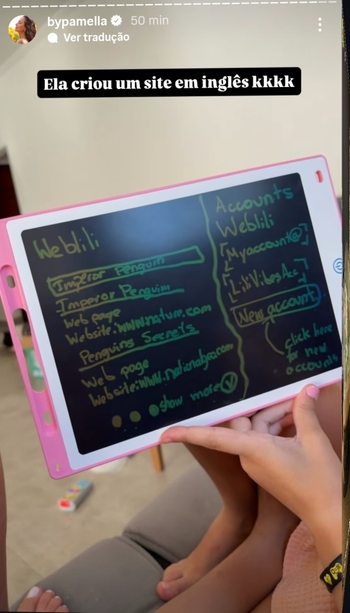 bypamella 50 min
Ver tradução
Ela criou um site em inglês kkkk
Weblili
Imperor Penguin
Imperor Penguim
Web page
Website:www.nature.com
Penguins Secrets
Web page
Website:www.nationalgeo.com
show more
Accounts
Weblili
Myaccount@
LiliVibesAcc
New account
click here
for new
accounts